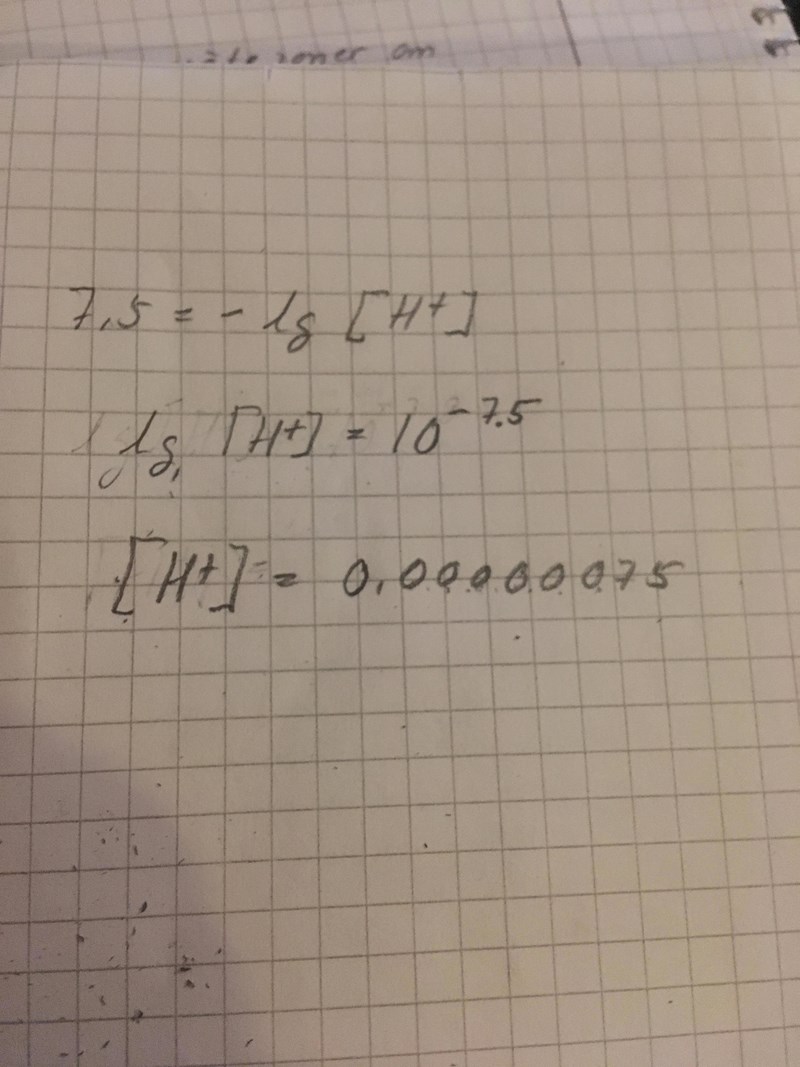 zoner om
7,5 = - lg [H+]
lg [H+] = 10^-7.5
[H+] = 0,00000075